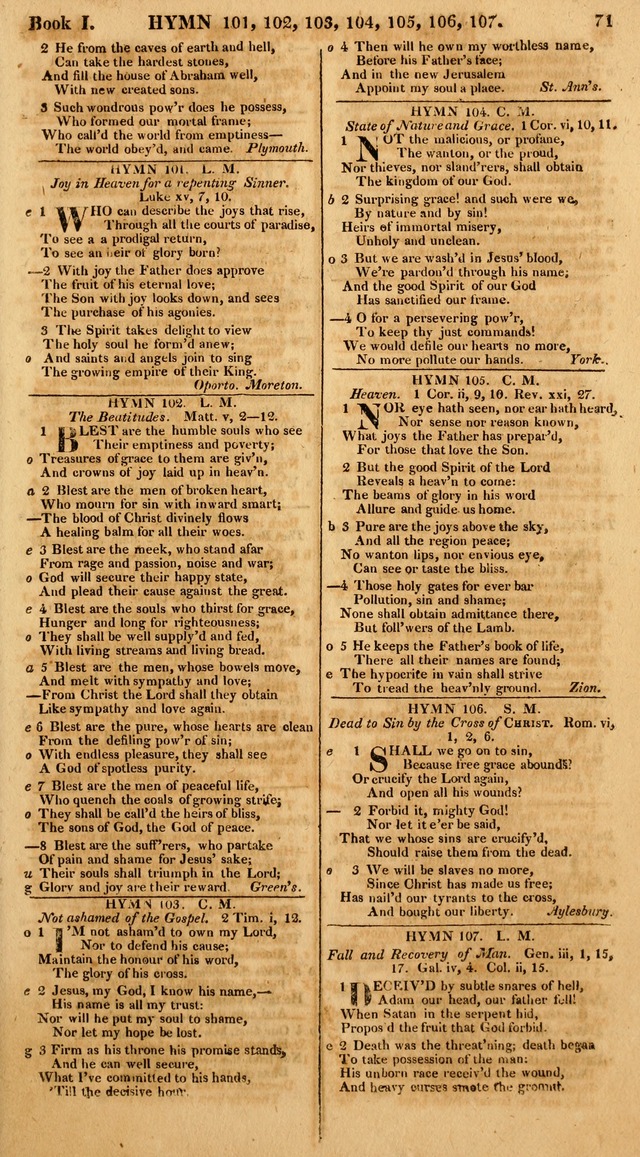 Book I. HYMN 101, 102, 103, 104, 105, 106, 107. 71
2 He from the caves of earth and hell,
Can take the hardest stones,
And fill the house of Abraham well,
With new created sons.
3 Such wondrous pow'r does he possess,
Who formed our mortal frame;
Who call'd the world from emptiness—
The world obey'd, and came. Plymouth.
HYMN 101. L. M.
Joy in Heaven for a repenting Sinner.
Luke xv, 7, 10.
e 1 WHO can describe the joys that rise,
Through all the courts of paradise,
To see a a prodigal return,
To see an heir of glory born?
—2 With joy the Father does approve
The fruit of his eternal love;
The Son with joy looks down, and sees
The purchase of his agonies.
3 The Spirit takes delight to view
The holy soul he form'd anew;
o And saints and angels join to sing
The growing empire of their King.
Oporto. Moreton.
HYMN 102. L. M.
The Beatitudes. Matt. v, 2—12.
1 BLEST are the humble souls who see
Their emptiness and poverty;
o Treasures of grace to them are giv'n,
And crowns of joy laid up in heav'n.
a 2 Blest are the men of broken heart,
Who mourn for sin with inward smart;
—The blood of Christ divinely flows
A healing balm for all their woes.
e 3 Blest are the meek, who stand afar
From rage and passion, noise and war;
o God will secure their happy state,
And plead their cause against the great.
e 4 Blest are the souls who thirst for grace,
Hunger and long for righteousness;
o They shall be well supply'd and fed,
With living streams and living bread.
a 5 Blest are the men, whose bowels move,
And melt with sympathy and love;
—From Christ the Lord shall they obtain
Like sympathy and love again.
e 6 Blest are the pure, whose hearts are clean
From the defiling pow'r of sin;
o With endless pleasure, they shall see
A God of spotless purity.
e 7 Blest are the men of peaceful life,
Who quench the coals of growing strife;
o They shall be call'd the heirs of bliss,
The sons of God, the God of peace.
—8 Blest are the suff'rers, who partake
Of pain and shame for Jesus' sake;
u Their souls shall triumph in the Lord;
g Glory and joy are their reward. Green's.
HYMN 103. C. M.
Not ashamed of the Gospel. 2 Tim. i, 12.
o 1 I'M not asham'd to own my Lord,
Nor to defend his cause;
Maintain the honour of his word,
The glory of his cross.
e 2 Jesus, my God, I know his name,—
His name is all my trust:
Nor will he put my soul to shame,
Nor let my hope be lost.
g 3 Firm as his throne his promise stands,
And he can well secure,
What I've committed to his hands,
'Till the decisive hour.
o 4 Then will he own my worthless name,
Before his Father's face;
And in the new Jerusalem
Appoint my soul a place. St. Ann's.
HYMN 104. C. M.
State of Nature and Grace. 1 Cor. vi, 10, 11.
1 NOT the malicious, or profane,
The wanton, or the proud,
Nor thieves, nor sland'rers, shall obtain
The kingdom of our God.
b 2 Surprising grace! and such were we,
By nature and by sin!
Heirs of immortal misery,
Unholy and unclean.
o 3 But we are wash'd in Jesus' blood,
We're pardon'd through his name;
And the good Spirit of our God
Has sanctified our frame.
—4 O for a persevering pow'r,
To keep thy just commands!
We would defile our hearts no more,
No more pollute our hands. York.
HYMN 105. C. M.
Heaven. 1 Cor. ii, 9, 10. Rev. xxi, 27.
1 NOR eye hath seen, nor ear hath heard,
Nor sense nor reason known,
What joys the Father has prepar'd,
For those that love the Son.
2 But the good Spirit of the Lord
Reveals a heav'n to come:
The beams of glory in his word
Allure and guide us home.
b 3 Pure are the joys above the sky,
And all the region peace;
No wanton lips, nor envious eye,
Can see or taste the bliss.
—4 Those holy gates for ever bar
Pollution, sin and shame;
None shall obtain admittance there,
But foll'wers of the Lamb.
o 5 He keeps the Father's book of life,
There all their names are found;
e The hypocrite in vain shall strive
To tread the heav'nly ground. Zion.
HYMN 106. S. M.
Dead to Sin by the Cross of CHRIST. Rom. vi,
1, 2, 6.
e 1 SHALL we go on to sin,
Because free grace abounds?
Or crucify the Lord again,
And open all his wounds?
— 2 Forbid it, mighty God!
Nor let it e'er be said,
That we whose sins are crucify'd,
Should raise them from the dead.
o 3 We will be slaves no more,
Since Christ has made us free;
Has nail'd our tyrants to the cross,
And bought our liberty. Aylesbury.
HYMN 107. L. M.
Fall and Recovery of Man. Gen. iii, 1, 15,
17. Gal. iv, 4. Col. ii, 15.
1 DECEIV'D by subtle snares of hell,
Adam our head, our father fell!
When Satan in the serpent hid,
Propos'd the fruit that God forbid.
e 2 Death was the threat'ning; death began
To take possession of the man:
His unborn race receiv'd the wound,
And heavy curses smote the ground.